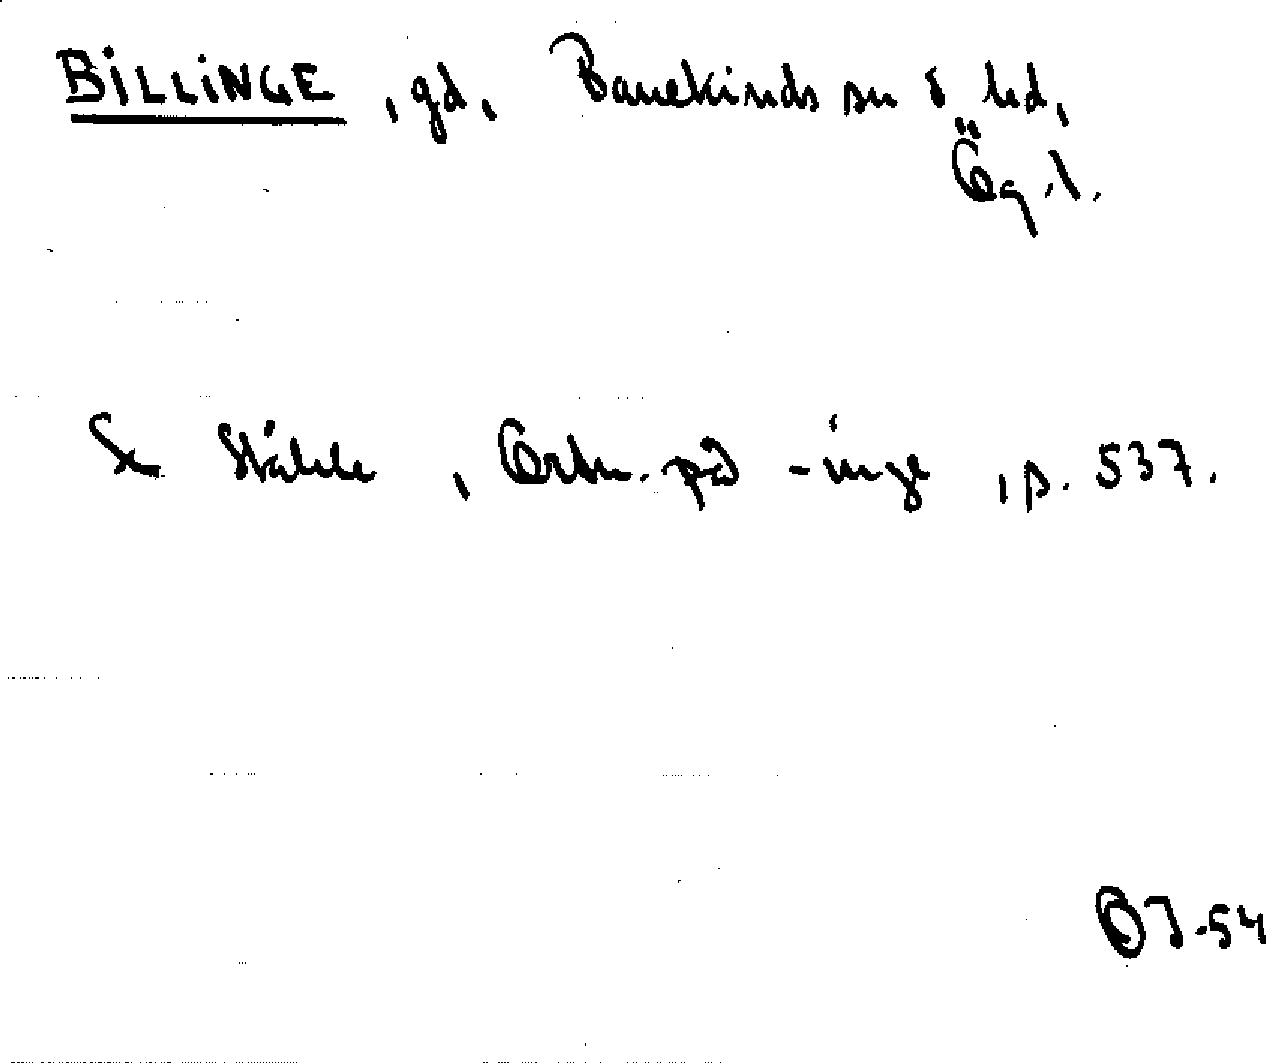 BILLINGE, gd, Banekinds sn o hd,
Ög.l.
Se Ståhle, Ortn. på -inge, p. 537.
OJ-54